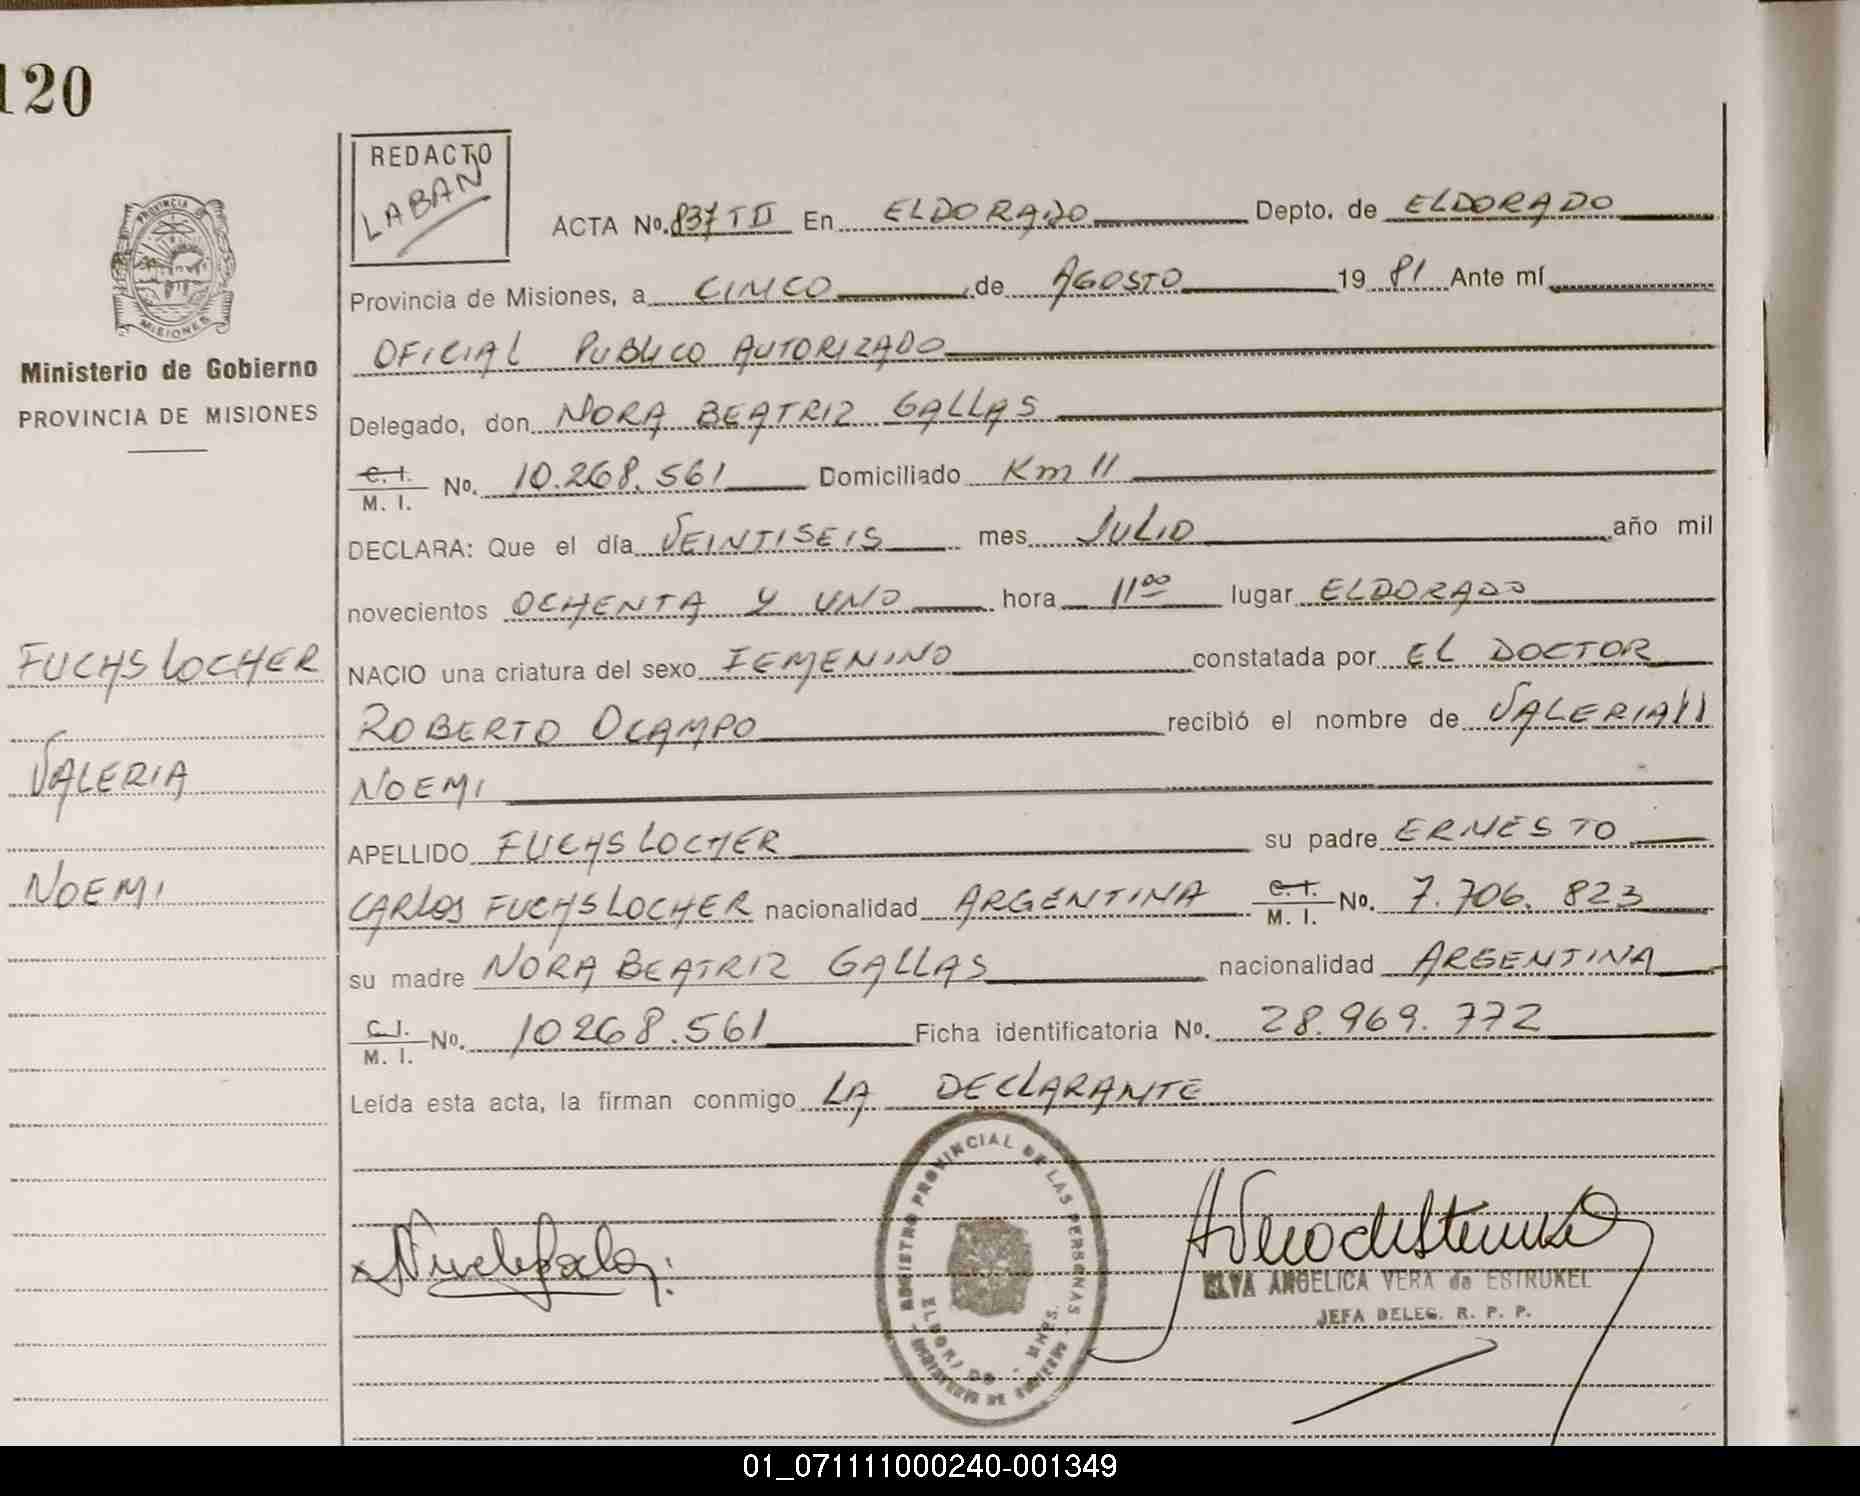 120
REDACTO
LABAN
PROVINCIA DE
MISIONES
Ministerio de Gobierno
PROVINCIA DE MISIONES
FUCHSLOCHER
VALERIA
NOEMI
ACTA No. 837 T II En ELDORADO Depto. de ELDORADO
Provincia de Misiones, a CINCO de AGOSTO 19 81 Ante mí
OFICIAL PUBLICO AUTORIZADO
Delegado, don NORA BEATRIZ GALLAS
C. I.
M. I. No. 10.268.561 Domiciliado Km 11
DECLARA: Que el día VEINTISEIS mes JULIO año mil
novecientos OCHENTA Y UNO hora 11⁰⁰ lugar ELDORADO
NACIO una criatura del sexo FEMENINO constatada por EL DOCTOR
ROBERTO OCAMPO recibió el nombre de VALERIA
NOEMI
APELLIDO FUCHSLOCHER su padre ERNESTO
CARLOS FUCHSLOCHER nacionalidad ARGENTINA C. I. M. I. No. 7.706.823
su madre NORA BEATRIZ GALLAS nacionalidad ARGENTINA
C. I.
M. I. No. 10268.561 Ficha identificatoria No. 28.969.772
Leída esta acta, la firman conmigo LA DECLARANTE
REGISTRO PROVINCIAL DE LAS PERSONAS
ELDORADO - MNES.
MINISTERIO DE GOBIERNO
ELVA ANGELICA VERA de ESTRUKEL
JEFA DELEG. R. P. P.
01_071111000240-001349